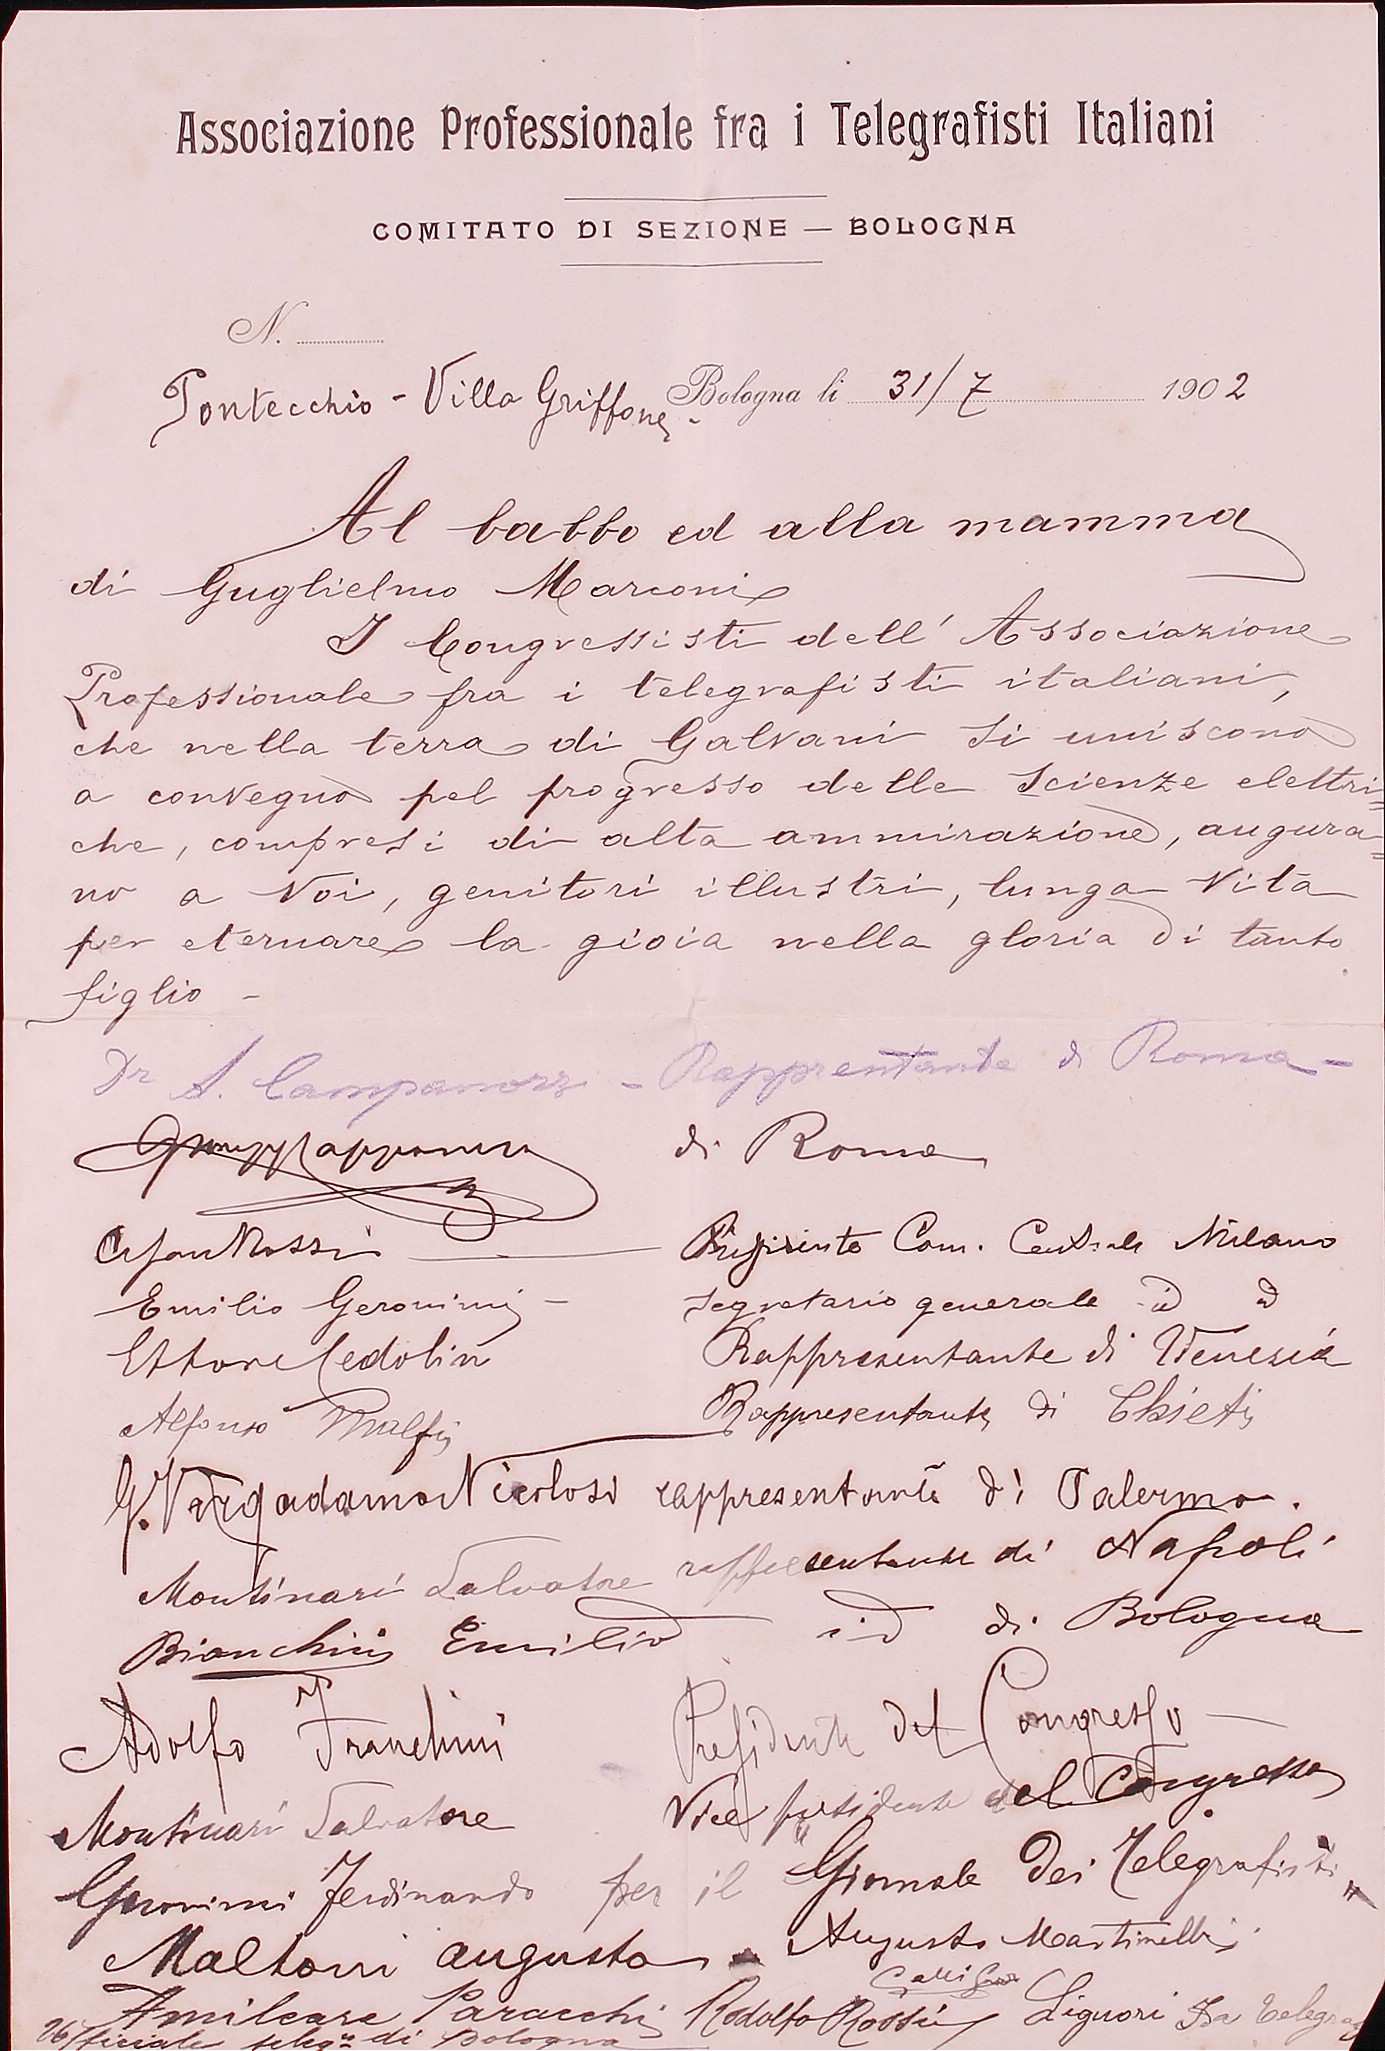 Associazione Professionale fra i Telegrafisti Italiani
COMITATO DI SEZIONE — BOLOGNA
N.
Pontecchio - Villa Griffone - Bologna li 31/7 1902
Al babbo ed alla mamma
di Guglielmo Marconi
I Congressisti dell' Associazione
Professionale fra i telegrafisti italiani,
che nella terra di Galvani si uniscono
a convegno pel progresso delle scienze elettri=
che, compresi di alta ammirazione, augura=
no a Voi, genitori illustri, lunga vita
per eternare la gioia nella gloria di tanto
figlio -
Dr A. Campanozzi - Rapprentante di Roma -
di Roma
Rossi Com. Centrale Milano
Emilio Geronimi - segretario generale id id
Ettore Cedolin Rappresentante di Venezia
Alfonso Rappresentante di Chieti
G. Vergadamo Nicolosi rappresentante di Palermo.
Montinari Salvatore rappresentante di Napoli
Bianchini Emilio id di Bologna
Adolfo Franchini Presidente del Congresso
Montinari Salvatore Vice presidente del Congresso
Geronimi Ferdinando per il "Giornale dei Telegrafisti"
Maltoni Augusto - Augusto Martinelli
Galli
Amilcare Paracchi Rodolfo Rossi Liguori
Ufficiale teleg. di Bologna